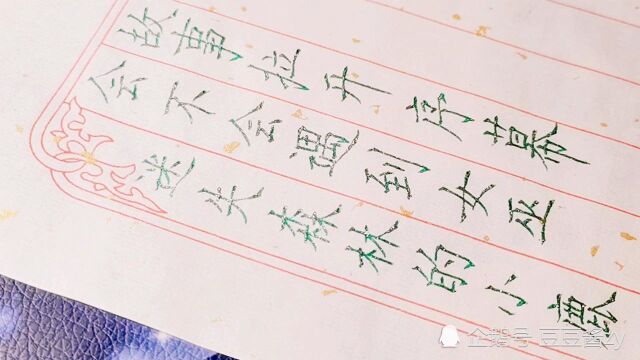 故事拉开序幕
会不会遇到女巫
迷失森林的小鹿
企鹅号 豆豆酱zy